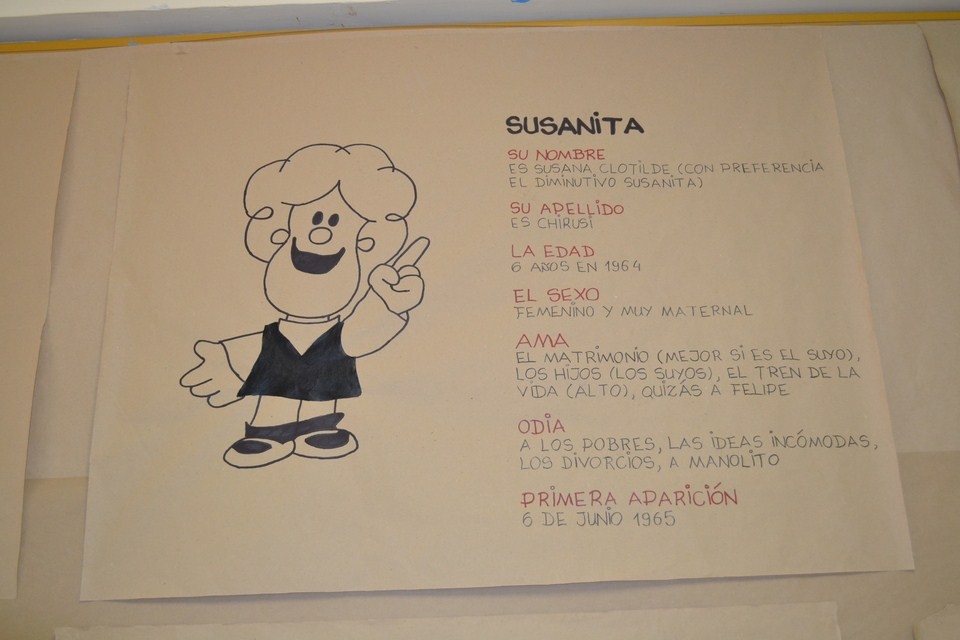 SUSANITA
SU NOMBRE
ES SUSANA CLOTILDE (CON PREFERENCIA
EL DIMINUTIVO SUSANITA)
SU APELLIDO
ES CHIRUSI
LA EDAD
6 AÑOS EN 1964
EL SEXO
FEMENINO Y MUY MATERNAL
AMA
EL MATRIMONIO (MEJOR SI ES EL SUYO),
LOS HIJOS (LOS SUYOS), EL TREN DE LA
VIDA (ALTO), QUIZÁS A FELIPE
ODIA
A LOS POBRES, LAS IDEAS INCÓMODAS,
LOS DIVORCIOS, A MANOLITO
PRIMERA APARICIÓN
6 DE JUNIO 1965